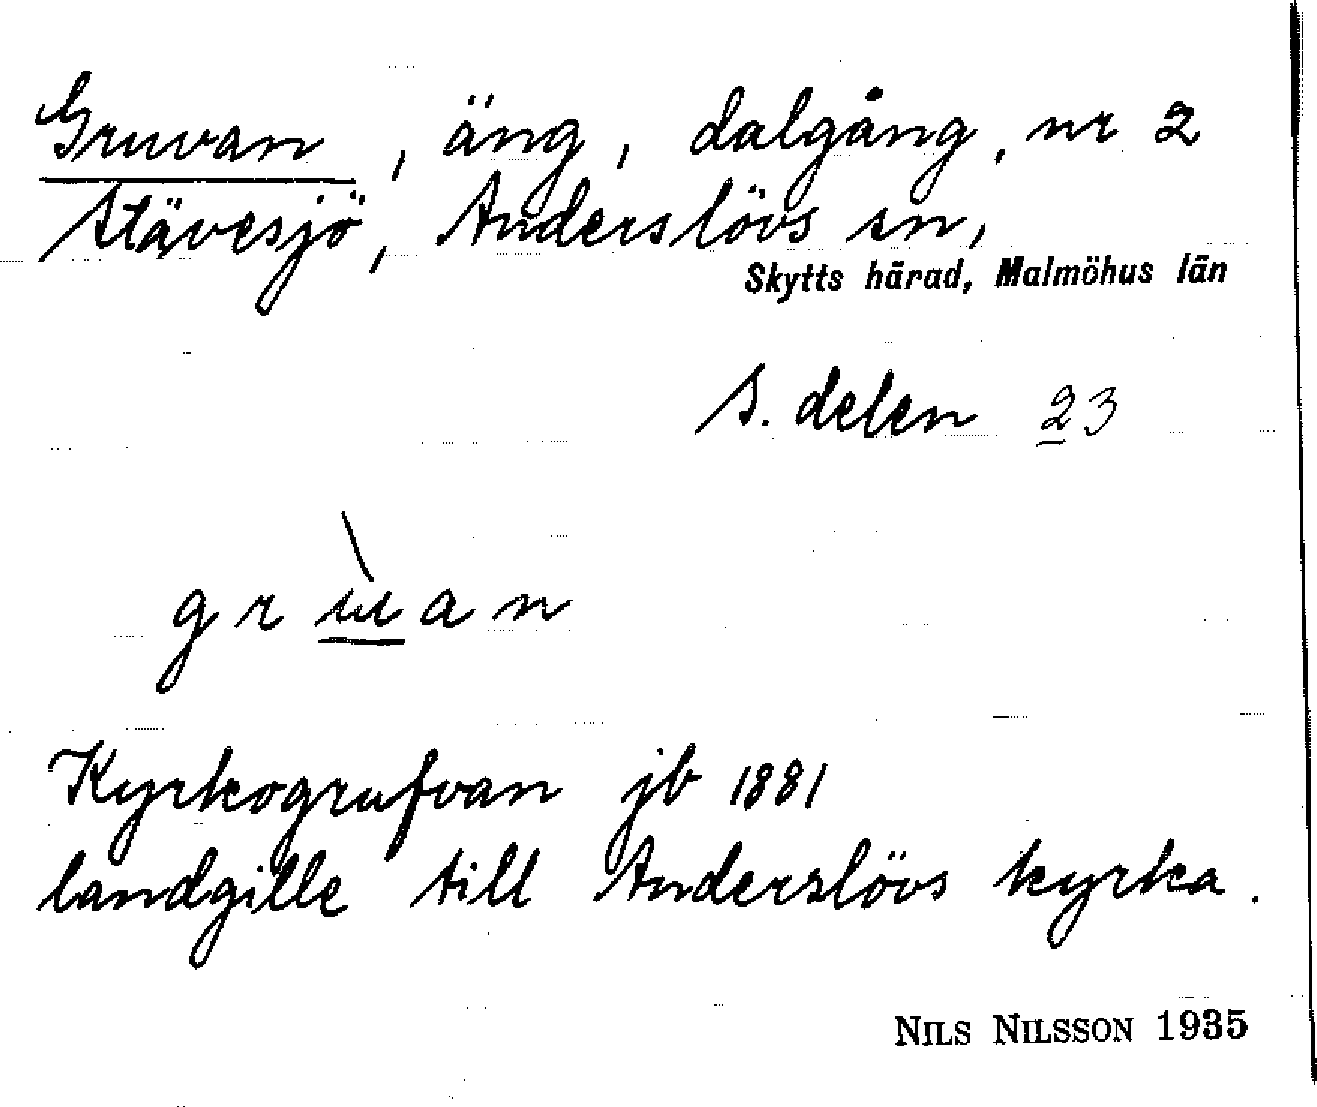 Gruvan, äng, dalgång, nr 2
Stävesjö, Anderslövs sn,
Skytts härad, Malmöhus län
S. delen 23
grùan
Kyrkogrufvan jb 1881
landgille till Anderslövs kyrka.
NILS NILSSON 1935